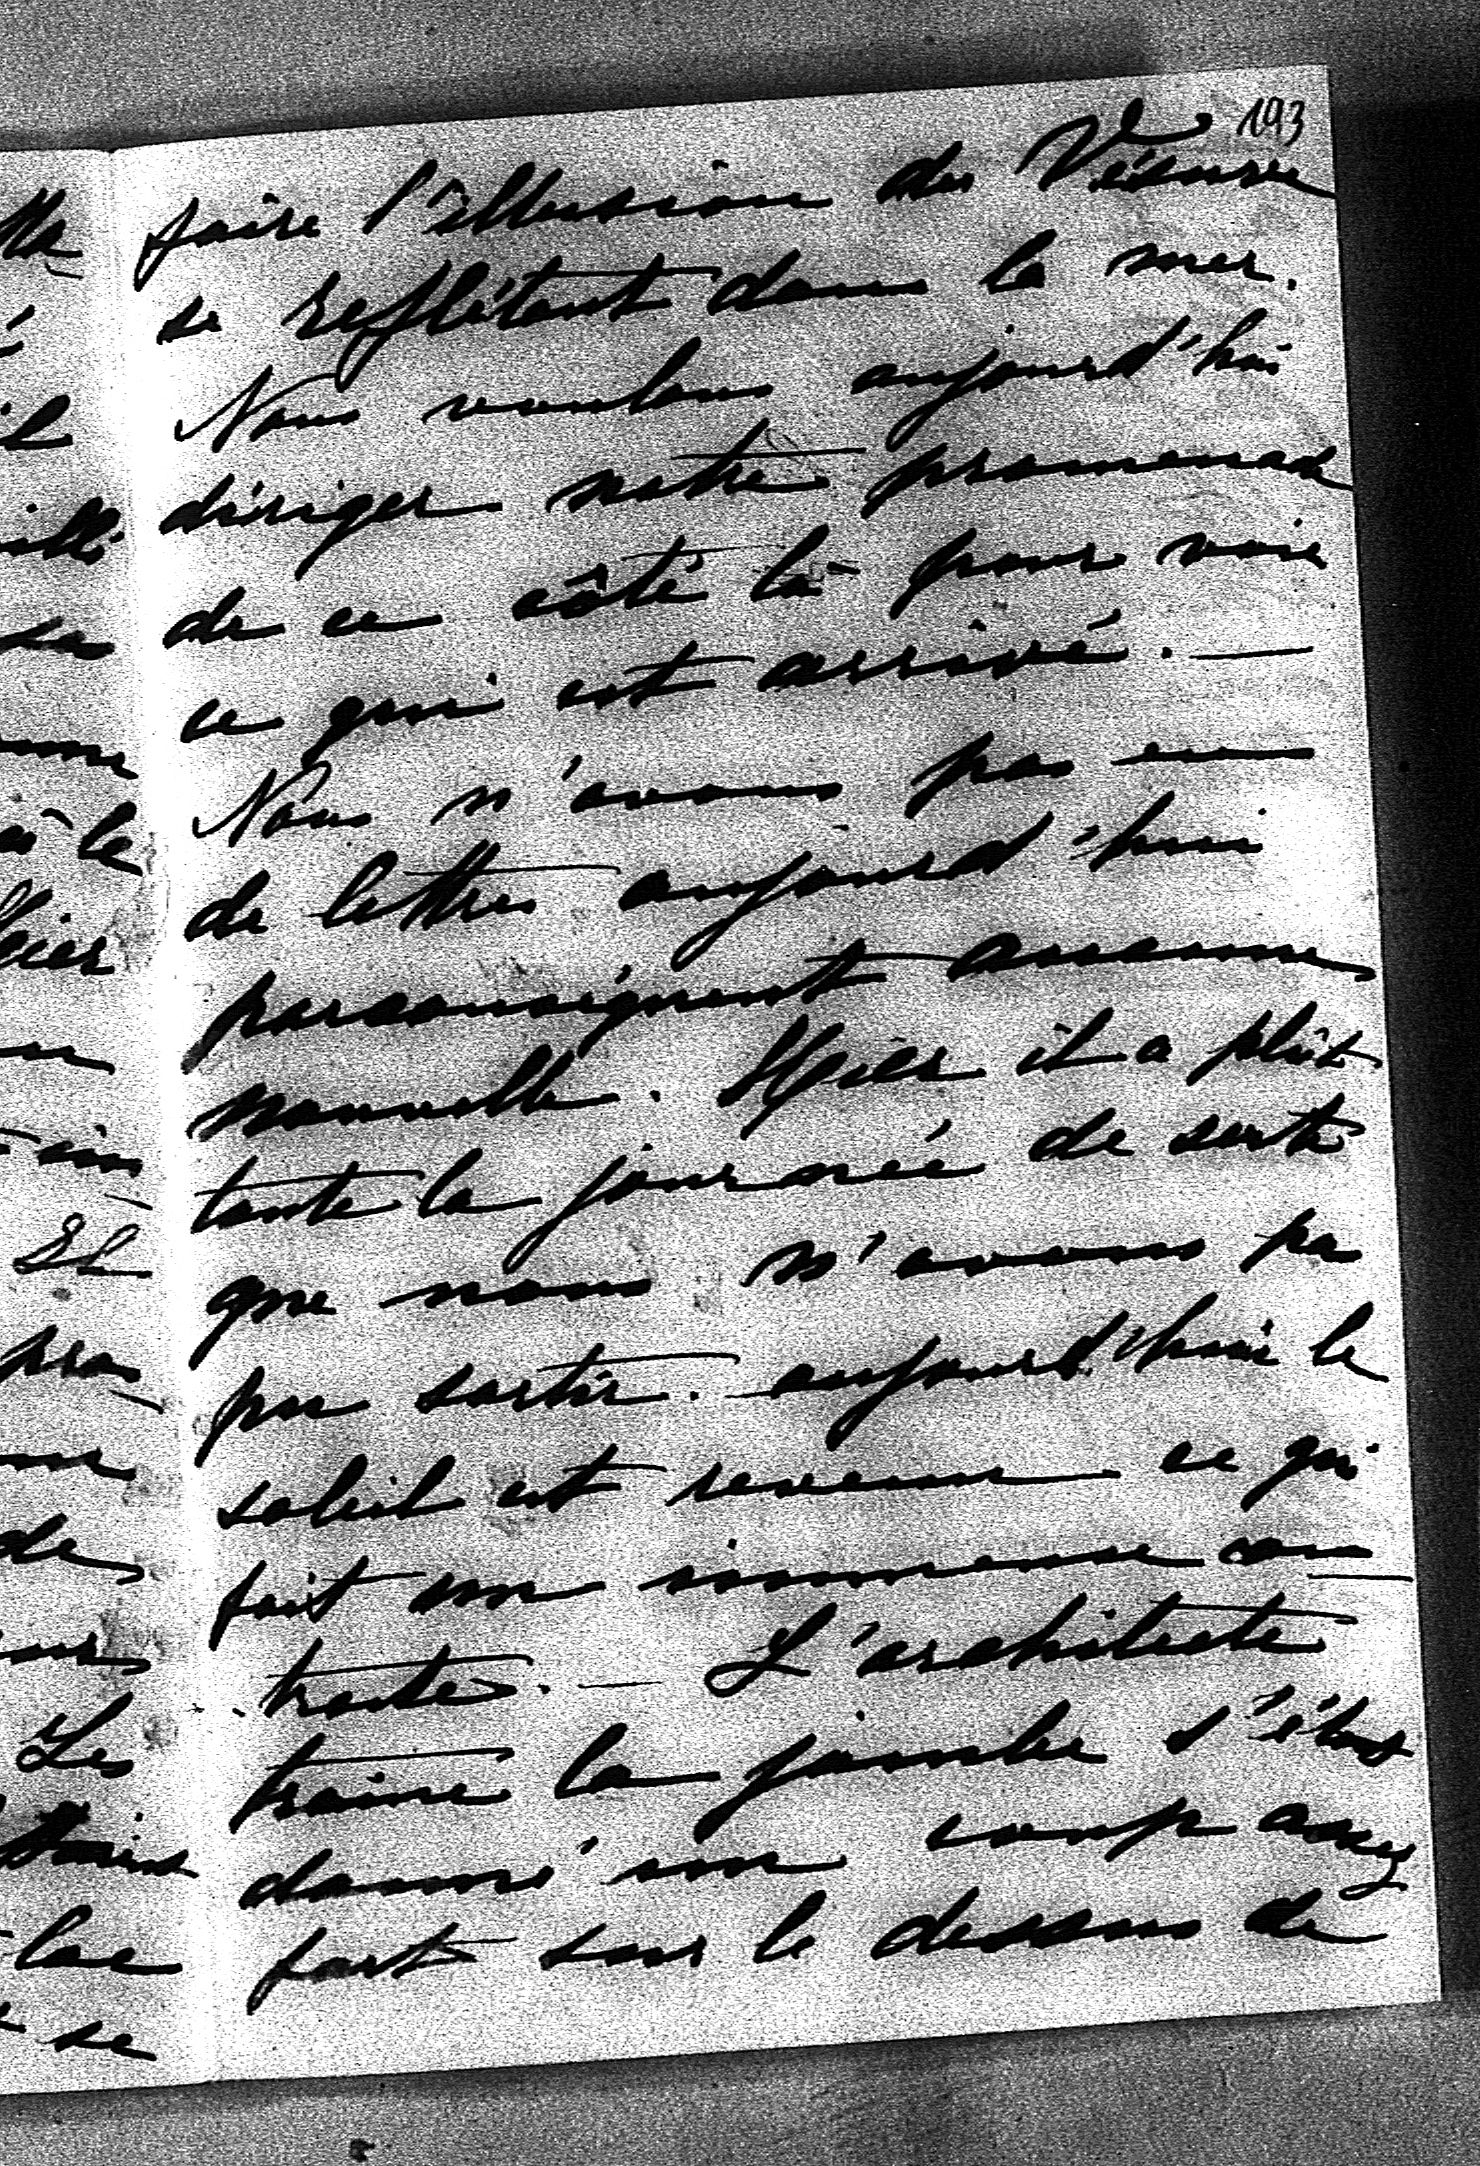 193
faire l'illusion du Vésuve
se reflétant dans la mer.
Nous voulons aujourd'hui
diriger notre promenade
de ce côté là pour voir
ce qui est arrivé. —
Nous n'avons pas eu
de lettres aujourd'hui
parconséquent aucune
nouvelle. Hier il a plût
toute la journée de sorte
que nous n'avons pas
pu sortir. aujourd'hui le
soleil est revenu ce qui
fait un immense con
traste. — L'architecte
traine la jambe s'étant
donné un coup assez
fort sur le dessus de